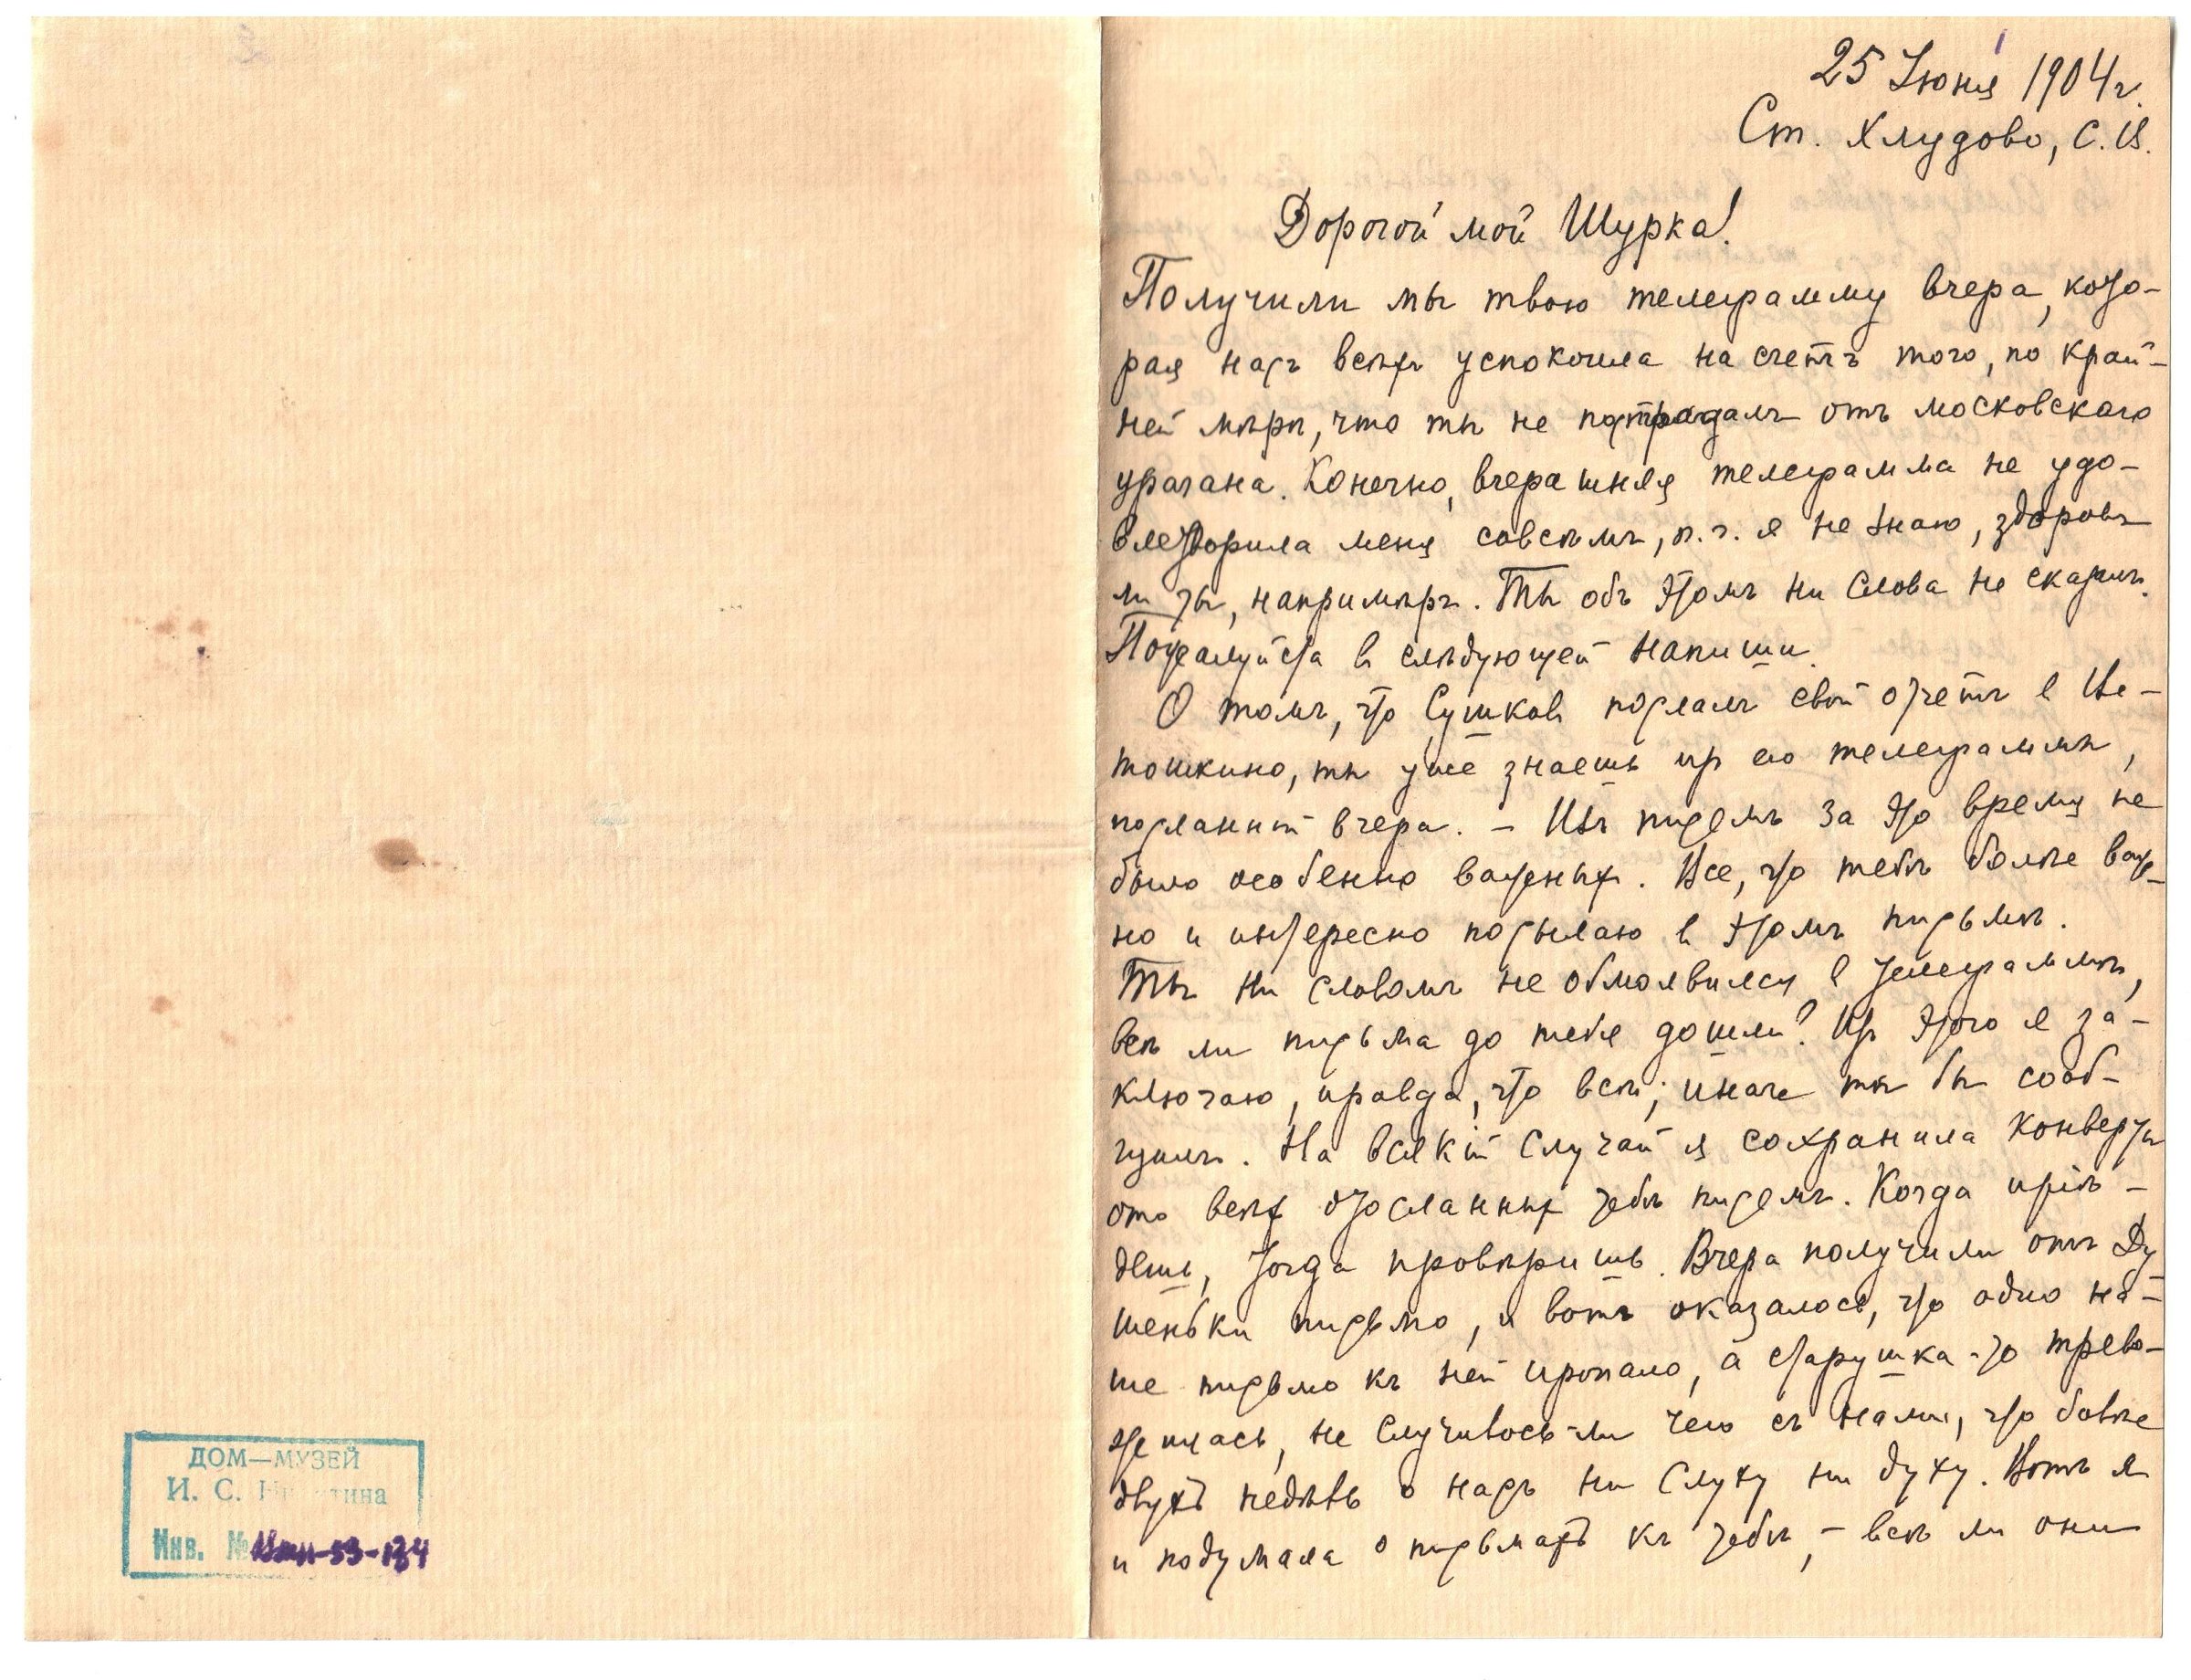 25 Июня 1904 г.
Ст. Хлудово, С. В.
Дорогой мой Шурка!
Получили мы твою телеграмму вчера, кото-
рая насъ всѣхъ успокоила на счетъ того, по край-
ней мѣрѣ, что ты не пострадалъ отъ московскаго
урагана. Конечно, вчерашняя телеграмма не удо-
влетворила меня совсѣмъ, п. ч. я не знаю, здоровъ
ли ты, напримѣръ. Ты объ этомъ ни слова не сказалъ.
Пожалуйста в слѣдующей напиши.
О томъ, что Сушковъ послалъ свой отчетъ в
тошкино, ты уже знаешь из его телеграммы,
посланной вчера. – Изъ писемъ за это время не
было особенно важных. Все, что тебѣ болѣе важ-
но и интересно посылаю в этомъ письмѣ.
Ты ни словомъ не обмолвился в телеграммѣ,
всѣ ли письма до тебя дошли? Изъ этого я за-
ключаю, правда, что всѣ; иначе ты бы сооб-
щилъ. На всякій случай я сохранила конверты
ото всѣх отосланных тебѣ писемъ. Когда пріѣ-
дешь, тогда провѣришь. Вчера получили отъ Ду
шеньки письмо, и вотъ оказалось, что одно на-
ше письмо къ ней пропало, а старушка-то трево-
жилась, не случилось-ли чего съ нами, что болѣе
двухъ недѣль о насъ ни слуху ни духу. Вотъ я
и подумала о письмахъ къ тебѣ, – всѣ ли они
ДОМ—МУЗЕЙ
И. С. Никитина
Инв. №